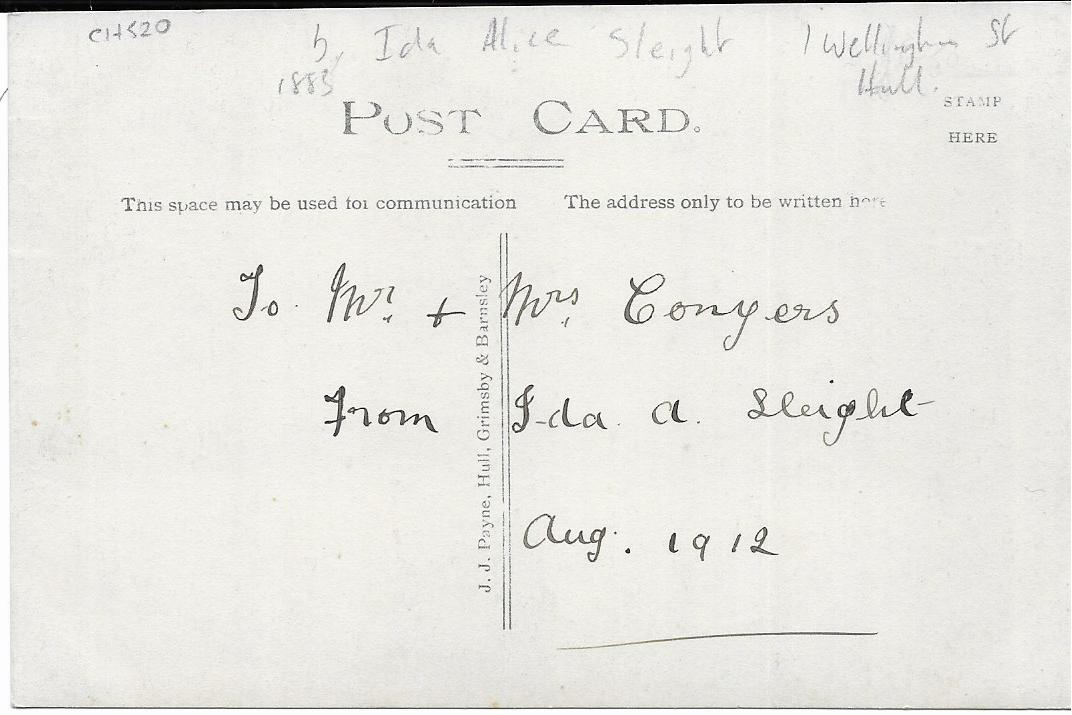 CH520
b, Ida Alice Sleight 1 Wellington St
1883 Hull.
POST CARD.
STAMP
HERE
This space may be used for communication
The address only to be written here
To Mr. & Mrs. Conyers
From Ida A. Sleight
Aug. 1912
J. J. Payne, Hull, Grimsby & Barnsley